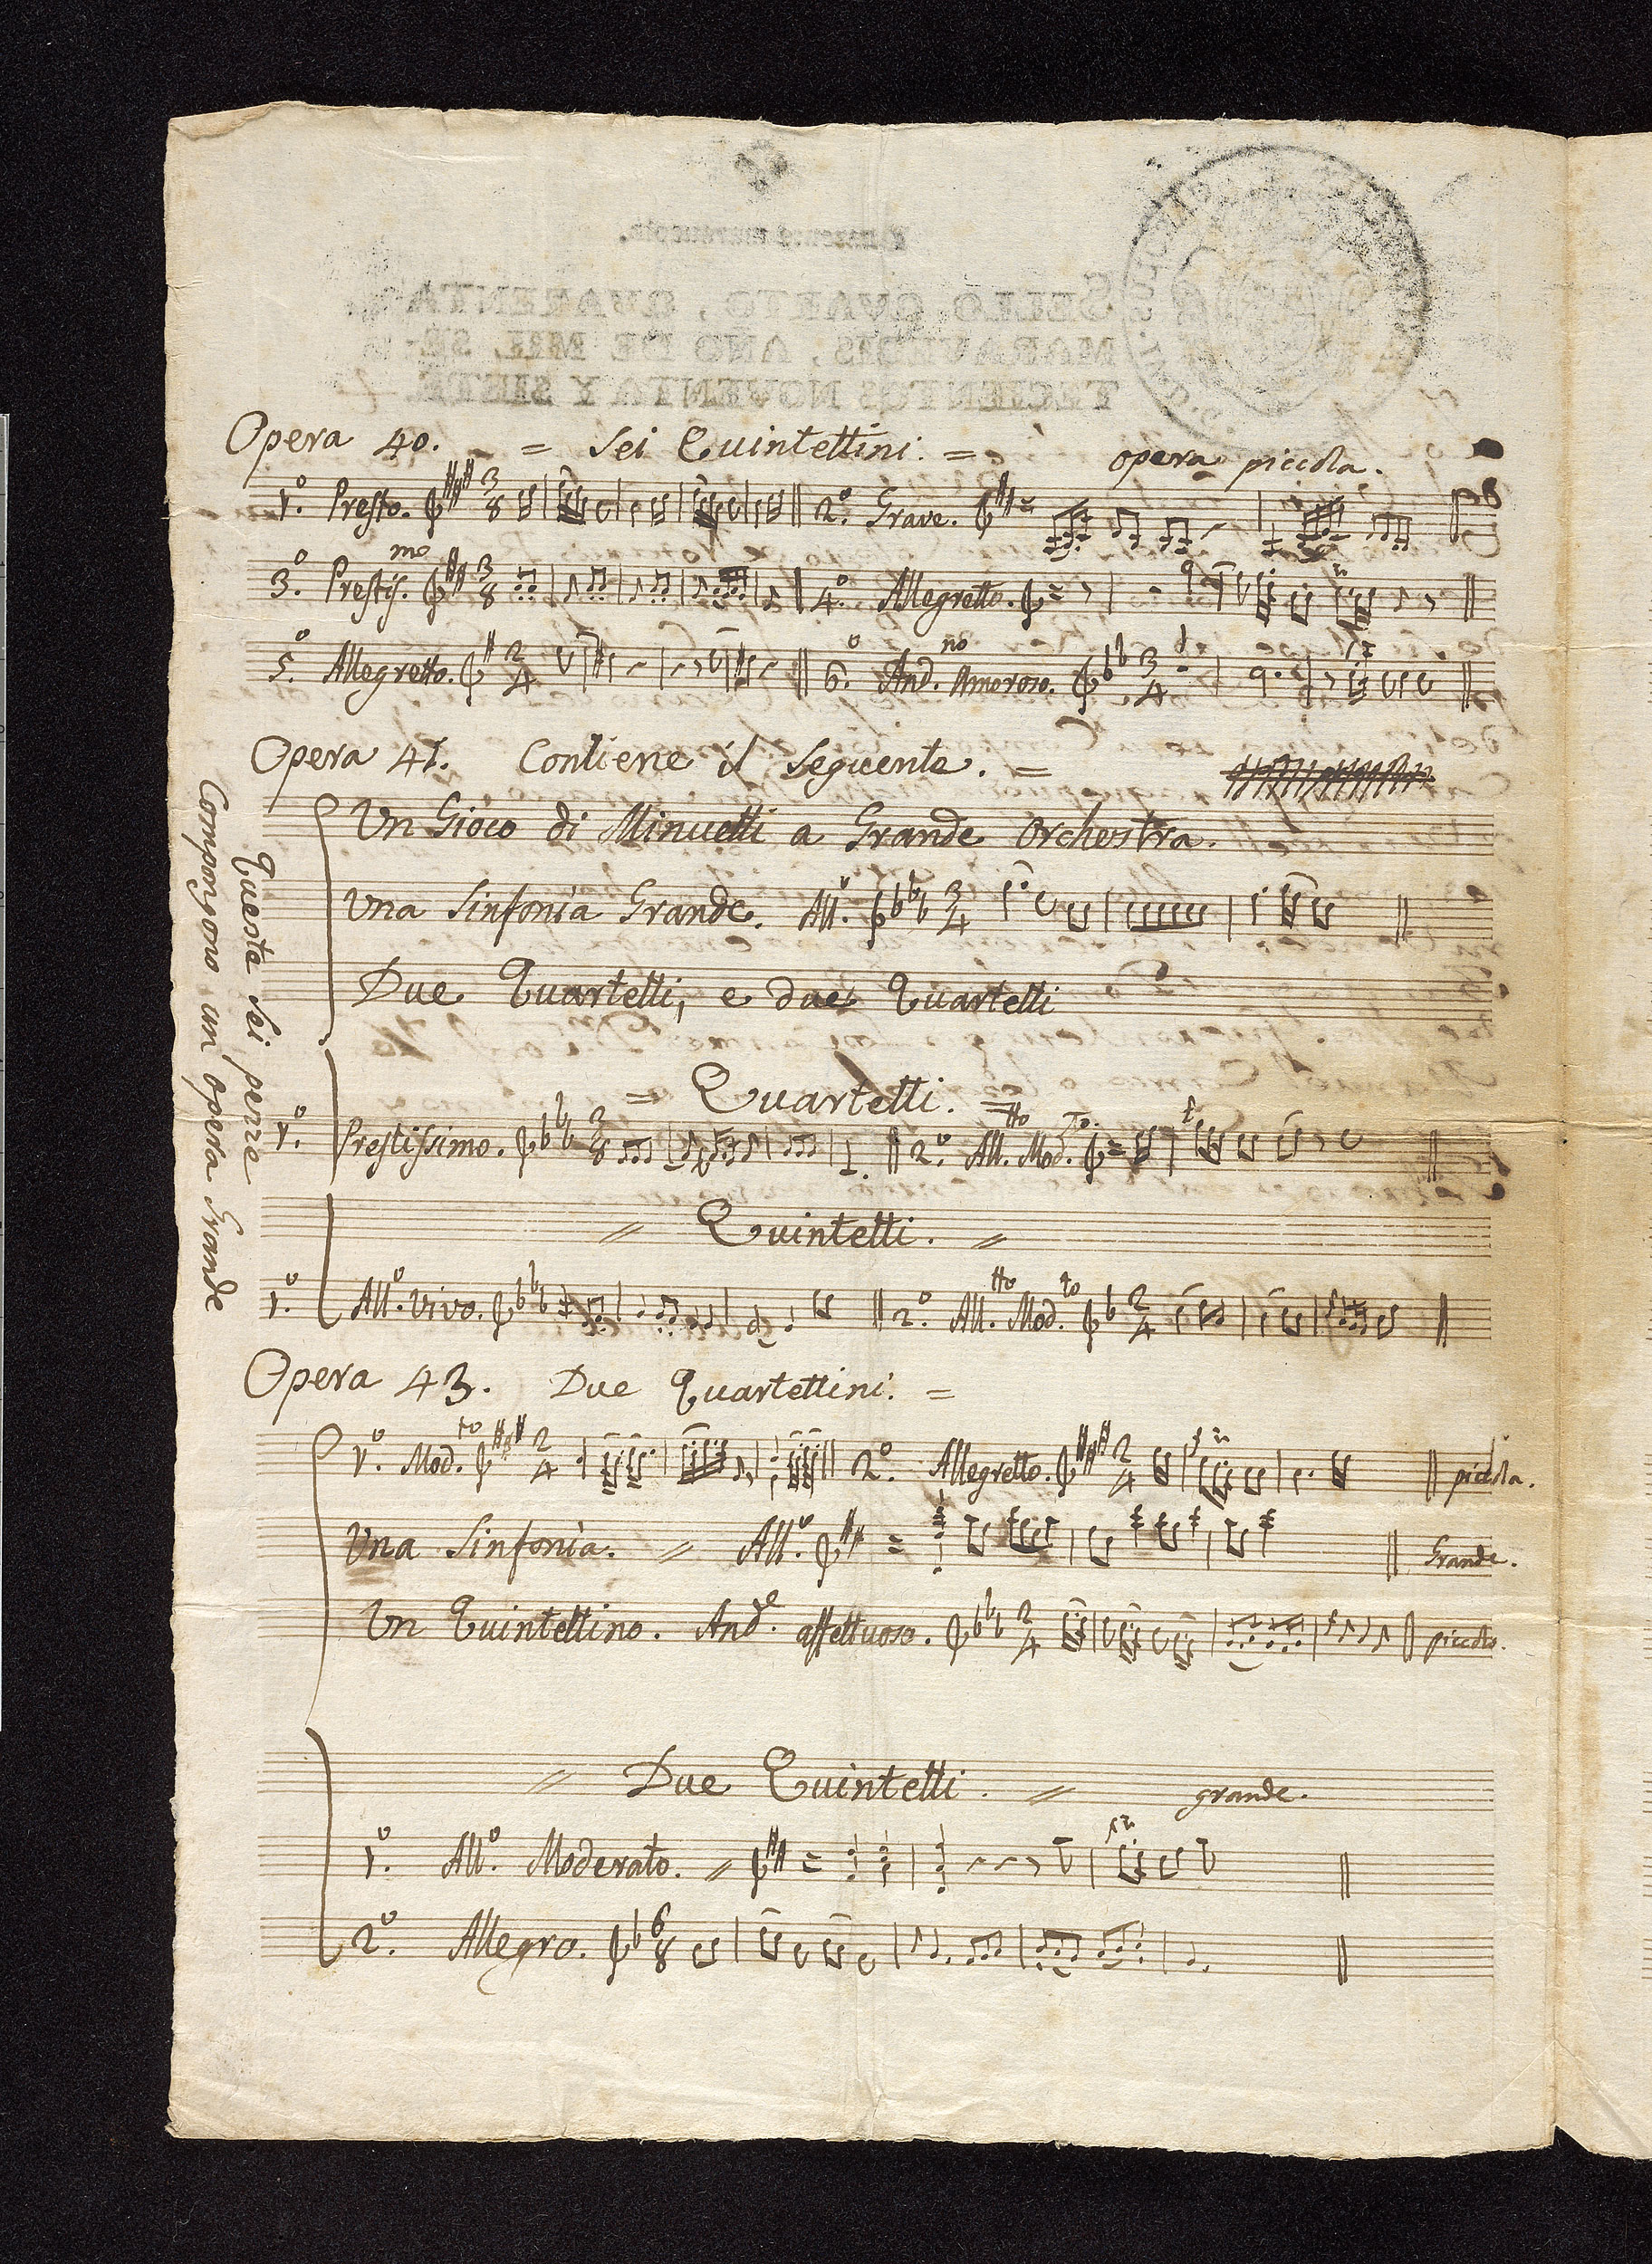 SELLO QVARTO, QUARENTA
MARAVEDIS, AÑO DE MIL SE-
TECIENTOS NOVENTA Y SIETE.
Opera 40. = Sei Quintettini. = opera piccola.
1.º Presto. 3 8 2.º Grave.
3.º Prestis.mo 3 8 4.º Allegretto.
5.º Allegretto. 2 4 6.º And.no Amoroso. 3 4
Opera 41. Contiene il seguente. =
Un Gioco di Minuetti a Grande Orchestra.
Una Sinfonia Grande. All.º 3 4
Due Quartetti, e due Quartetti
= Quartetti. =
1.º Prestissimo. 3 8 2.º All.tto Mod.to
= Quintetti. =
1.º All.º vivo. 2.º All.tto Mod.to 2 4
Queste sei pezze
Compongono un opera Grande
Opera 43. Due Quartettini. =
1.º Mod.to 2 4 2.º Allegretto. 2 4 piccola.
Una Sinfonia. = All.º Grande.
Un Quintettino. And.e affettuoso. 2 4 piccolo.
= Due Quintetti. = grande.
1.º All.º Moderato. =
2.º Allegro. 6 8